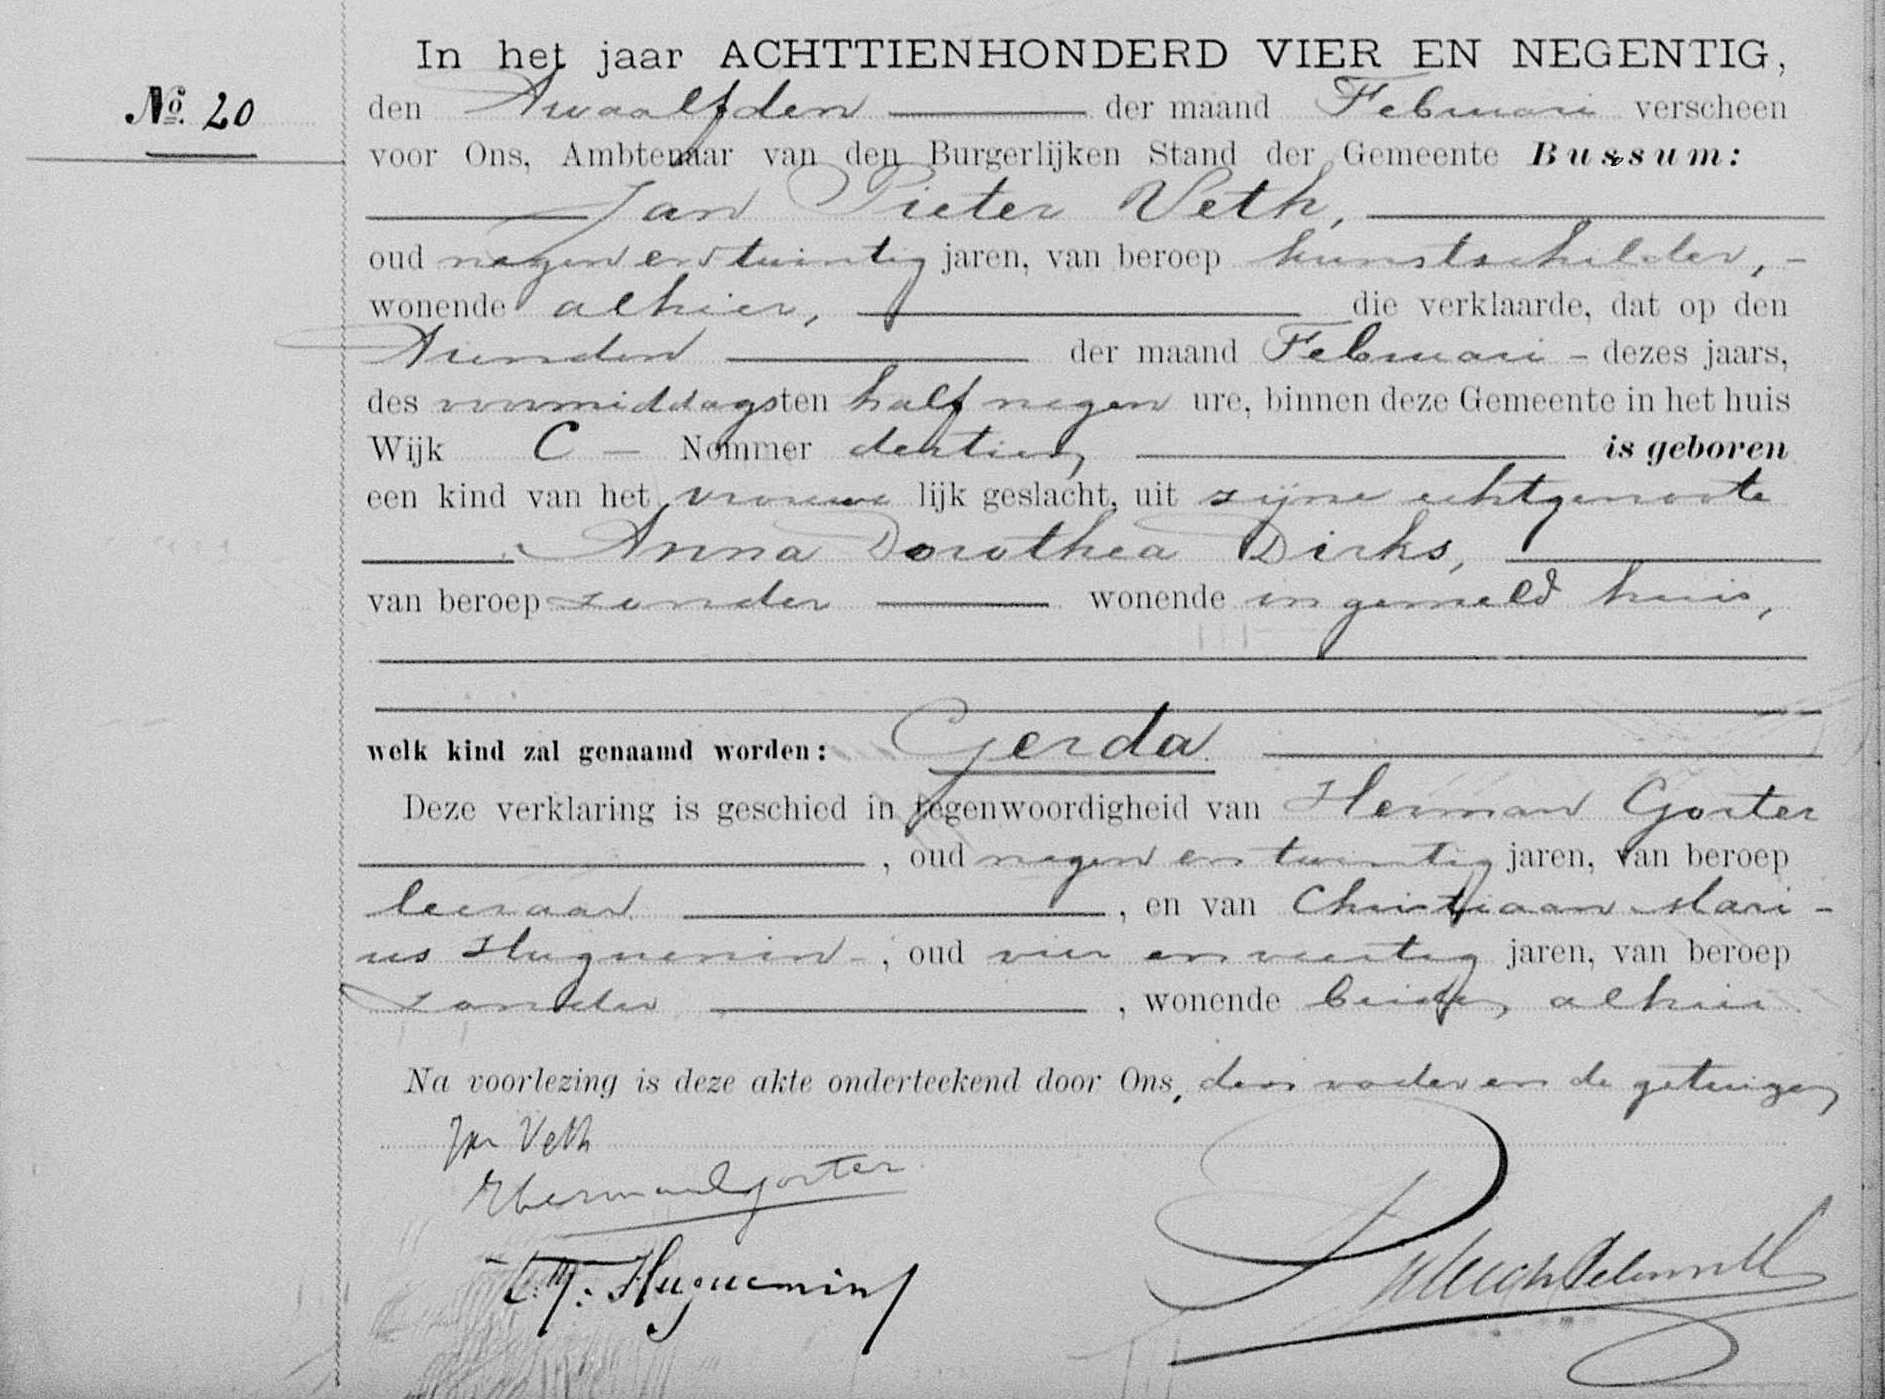 In het jaar ACHTTIENHONDERD VIER EN NEGENTIG,
No. 20
den Twaalfden der maand Februari verscheen
voor Ons, Ambtenaar van den Burgerlijken Stand der Gemeente Bussum:
Jan Pieter Veth,
oud negen en twintig jaren, van beroep kunstschilder,
wonende alhier, die verklaarde, dat op den
Tienden der maand Februari dezes jaars,
des voormiddags ten half negen ure, binnen deze Gemeente in het huis
Wijk C Nommer dertien, is geboren
een kind van het vrouwe lijk geslacht, uit zijne echtgenoote
Anna Dorothea Dirks,
van beroep zonder wonende in gemeld huis,
welk kind zal genaamd worden: Gerda
Deze verklaring is geschied in tegenwoordigheid van Herman Gorter
, oud negen en twintig jaren, van beroep
leeraar , en van Christiaan Mari-
us Huguenin , oud vier en veertig jaren, van beroep
zonder , wonende beiden, alhier
Na voorlezing is deze akte onderteekend door Ons, den vader en de getuigen,
Jan Veth
Herman Gorter
C.M. Huguenin